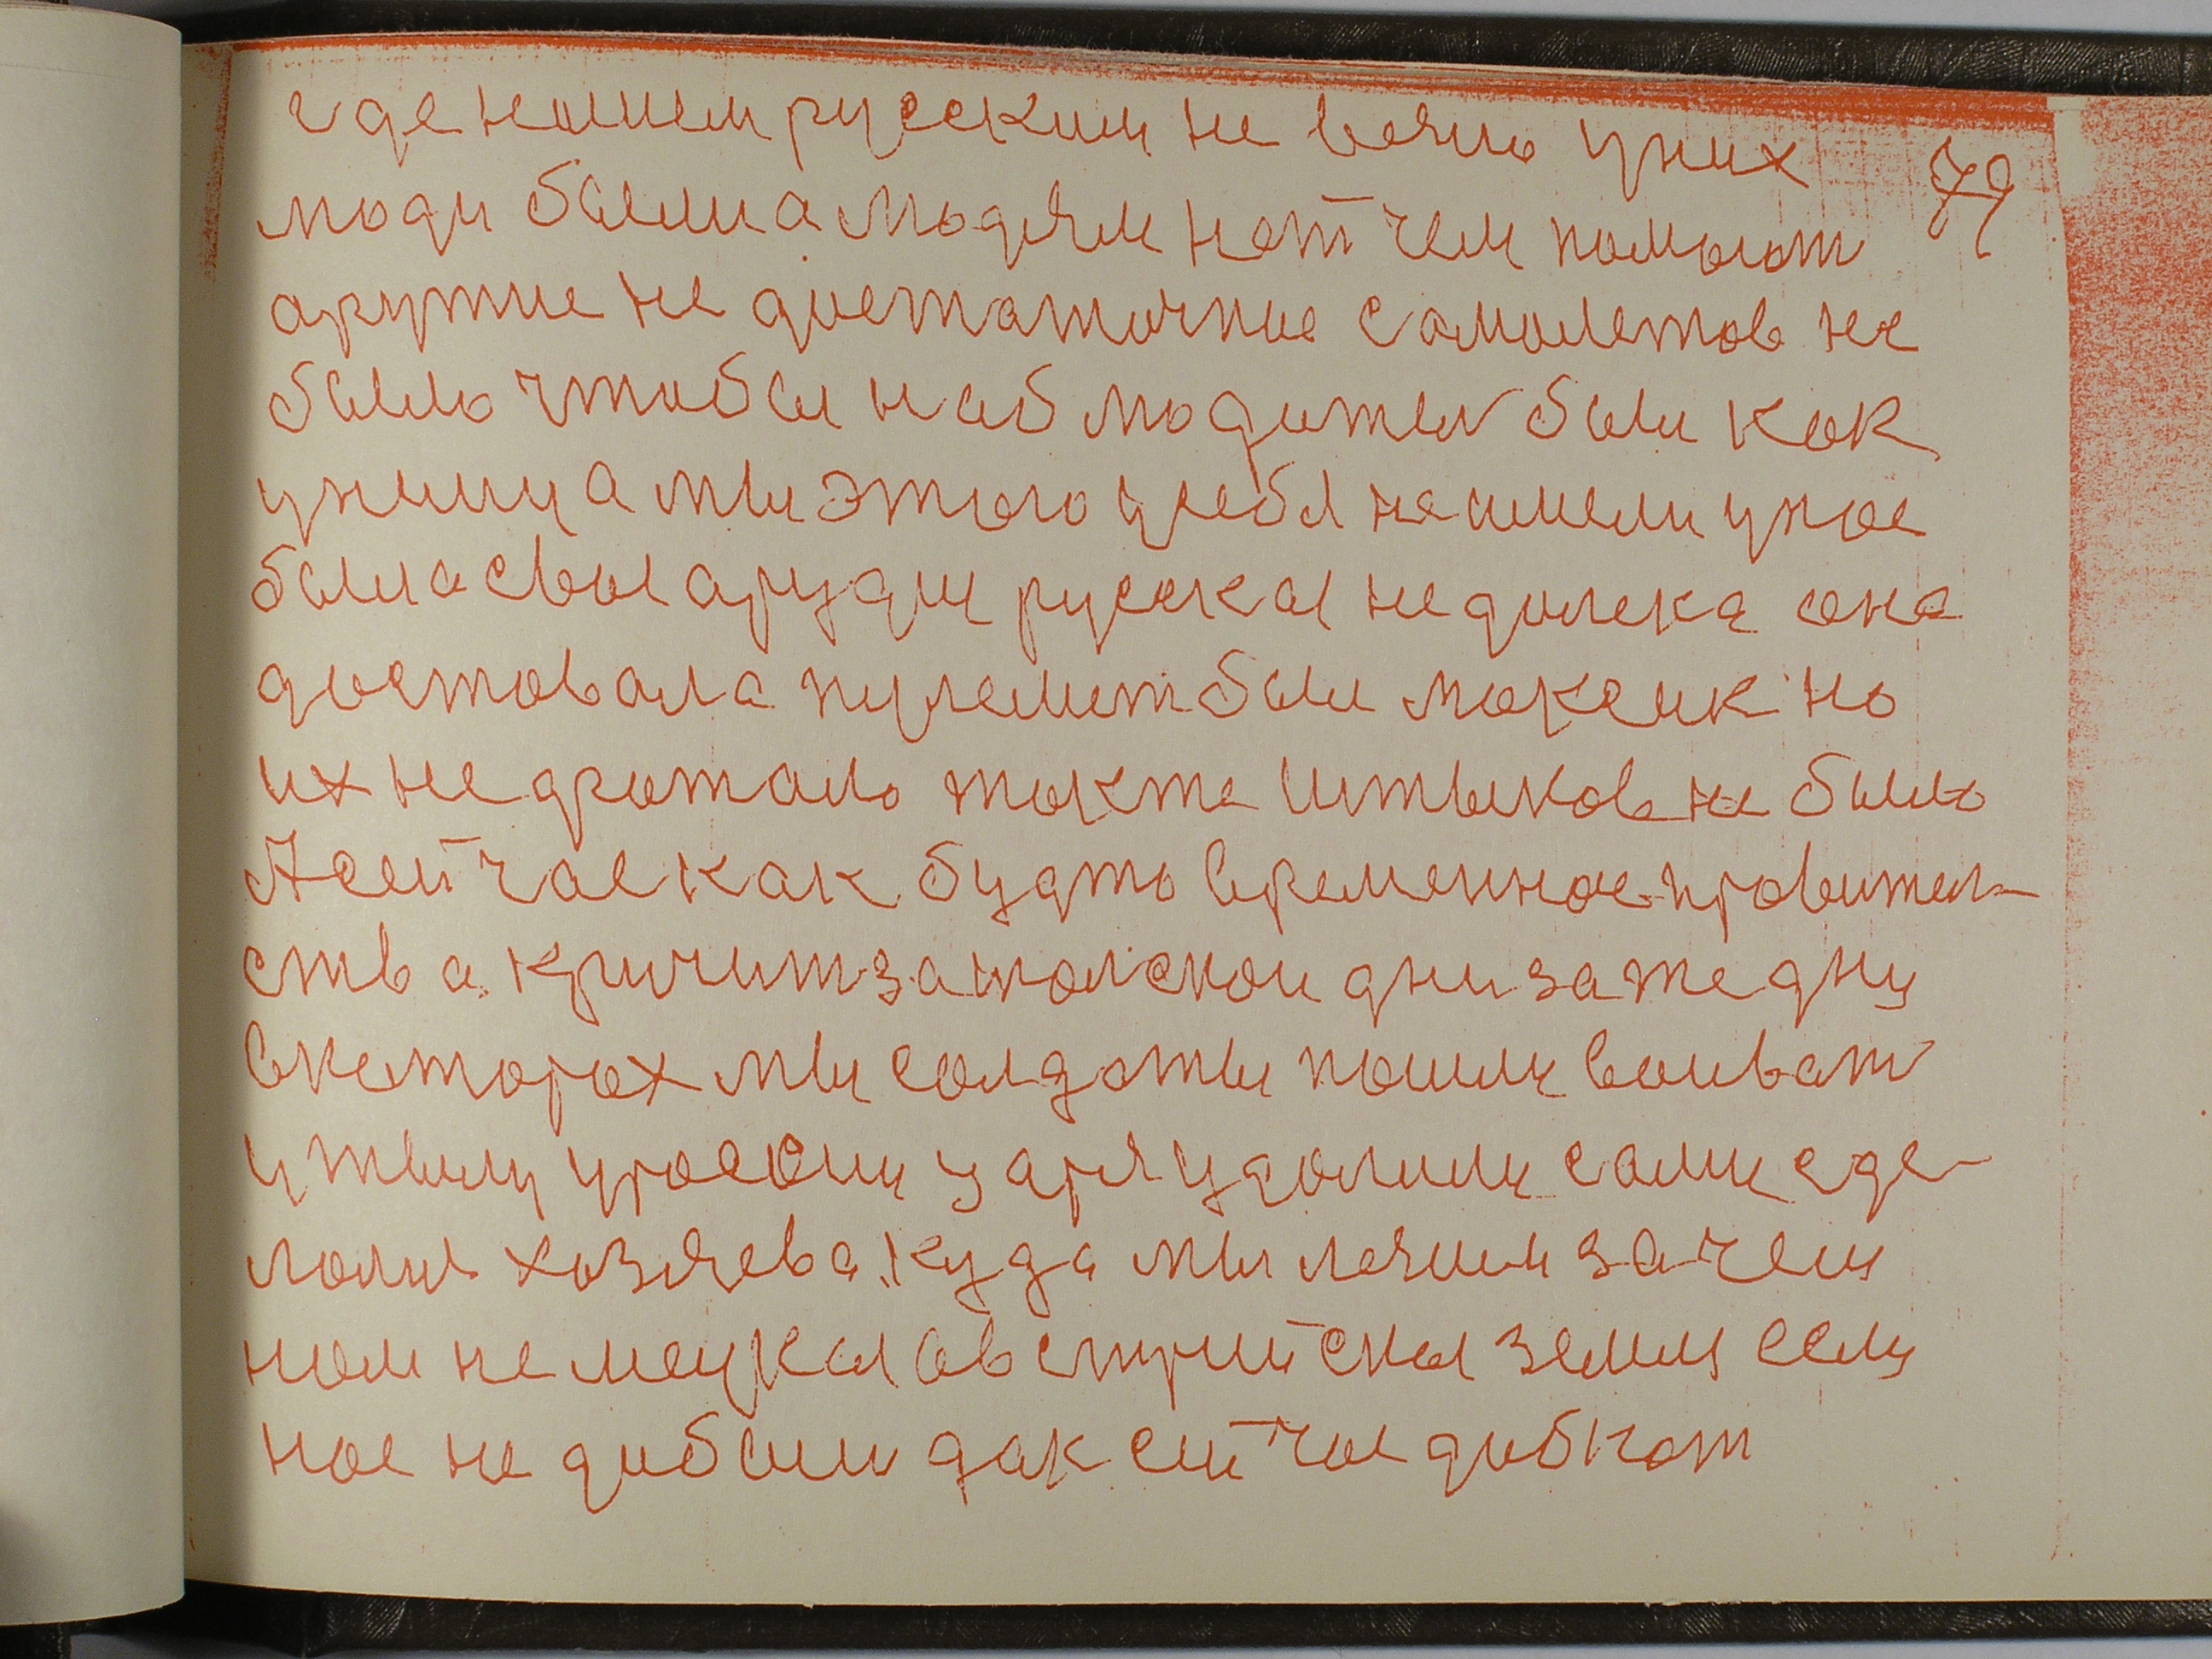 где нашем руским не везло уних
79
люди былиа людям нет чем помогат
аружие не достаточные самолетов не
было чтобы наблюдитыл был как
унимц а мы этого uребя неимели унас
была своя арудия русская не далека она
доставала пулемет был максик но
их не дхатало также штыков не было
А сейчас как будто временное правител-
ства кричит запольской дни за же дну
вкоторох мы солдаты пошли воиват
и тылу уроссии царя удолили сами сде-
лолис хозяева куда мы лезим зачем
нам немецкая австрийская земля если
нас не добили дак сейчас добют